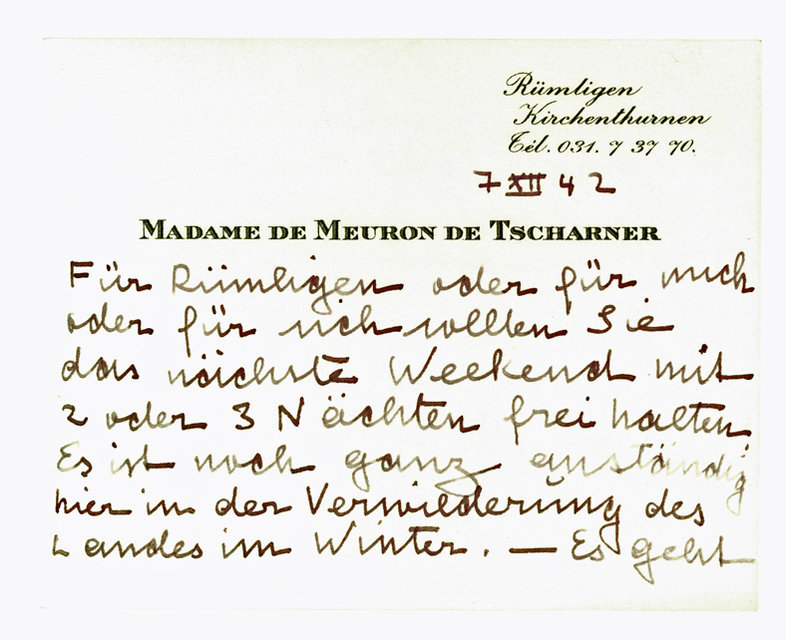 Rümligen
Kirchenthurnen
Tél. 031. 7 37 70.
7 XII 42
MADAME DE MEURON DE TSCHARNER
Für Rümligen oder für mich
oder für sich wollten Sie
das nächste Weekend mit
2 oder 3 Nächten frei halten.
Es ist noch ganz anständig
hier in der Verwilderung des
Landes im Winter. — Es geht